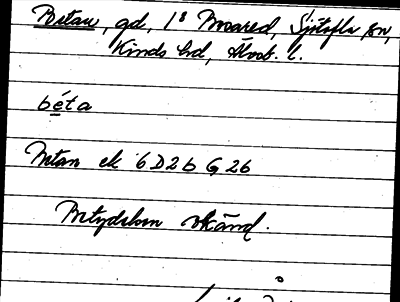 Betan, gd, 1⁸ Broared, Sjötofta sn,
Kinds hd, Älvsb. l.
béta
Betan ek 6D2b G 26
Betydelsen okänd.